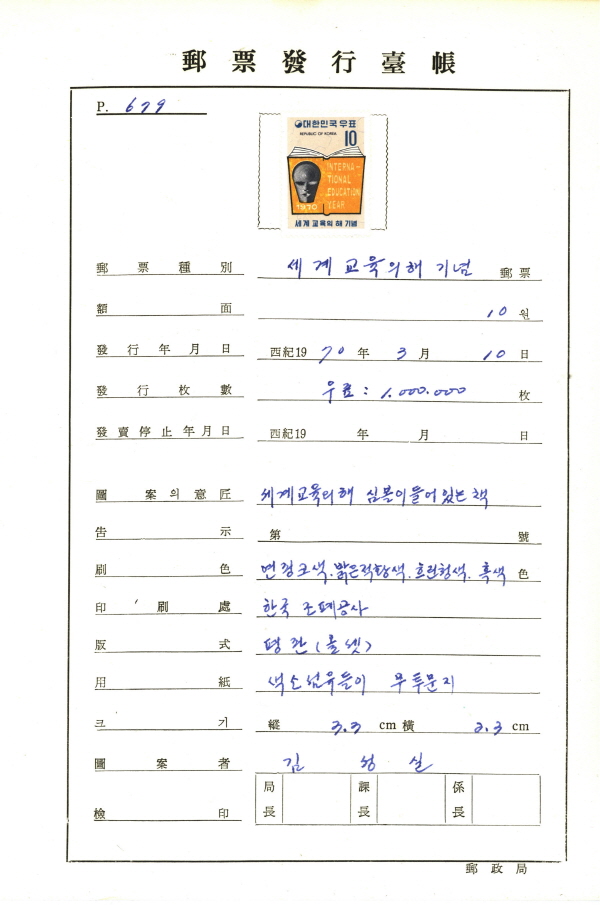 郵票發行臺帳
P. 679
대한민국우표
REPUBLIC OF KOREA
10
INTERNA-
TIONAL
EDUCATION
YEAR
1970
세계 교육의 해 기념
郵票種別 세계교육의해 기념 郵票
額面 10 원
發行年月日 西紀19 70 年 3 月 10 日
發行枚數 우표: 1.000.000 枚
發賣停止年月日 西紀19 年 月 日
圖案의意匠 세계교육의해 심볼이들어있는 책
告示 第 號
刷色 밝은적황색. 흑색 色
印刷處 한국 조폐공사
版式 평판(옵셋)
用紙 색소섬유들이 무투문지
크기 縱 3.3 cm 橫 2.3 cm
圖案者 김 성 실
檢印 局長 課長 係長
郵政局